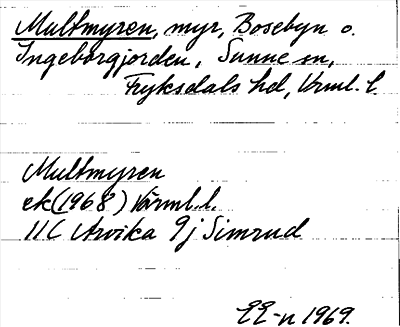 Multmyren, myr, Bosebyn o.
Ingeborgjorden, Sunne sn,
Fryksdals hd, Värml. l.
Multmyren
ek (1968) Värml. l.
11C Arvika 9j Simrud
-n 1969.